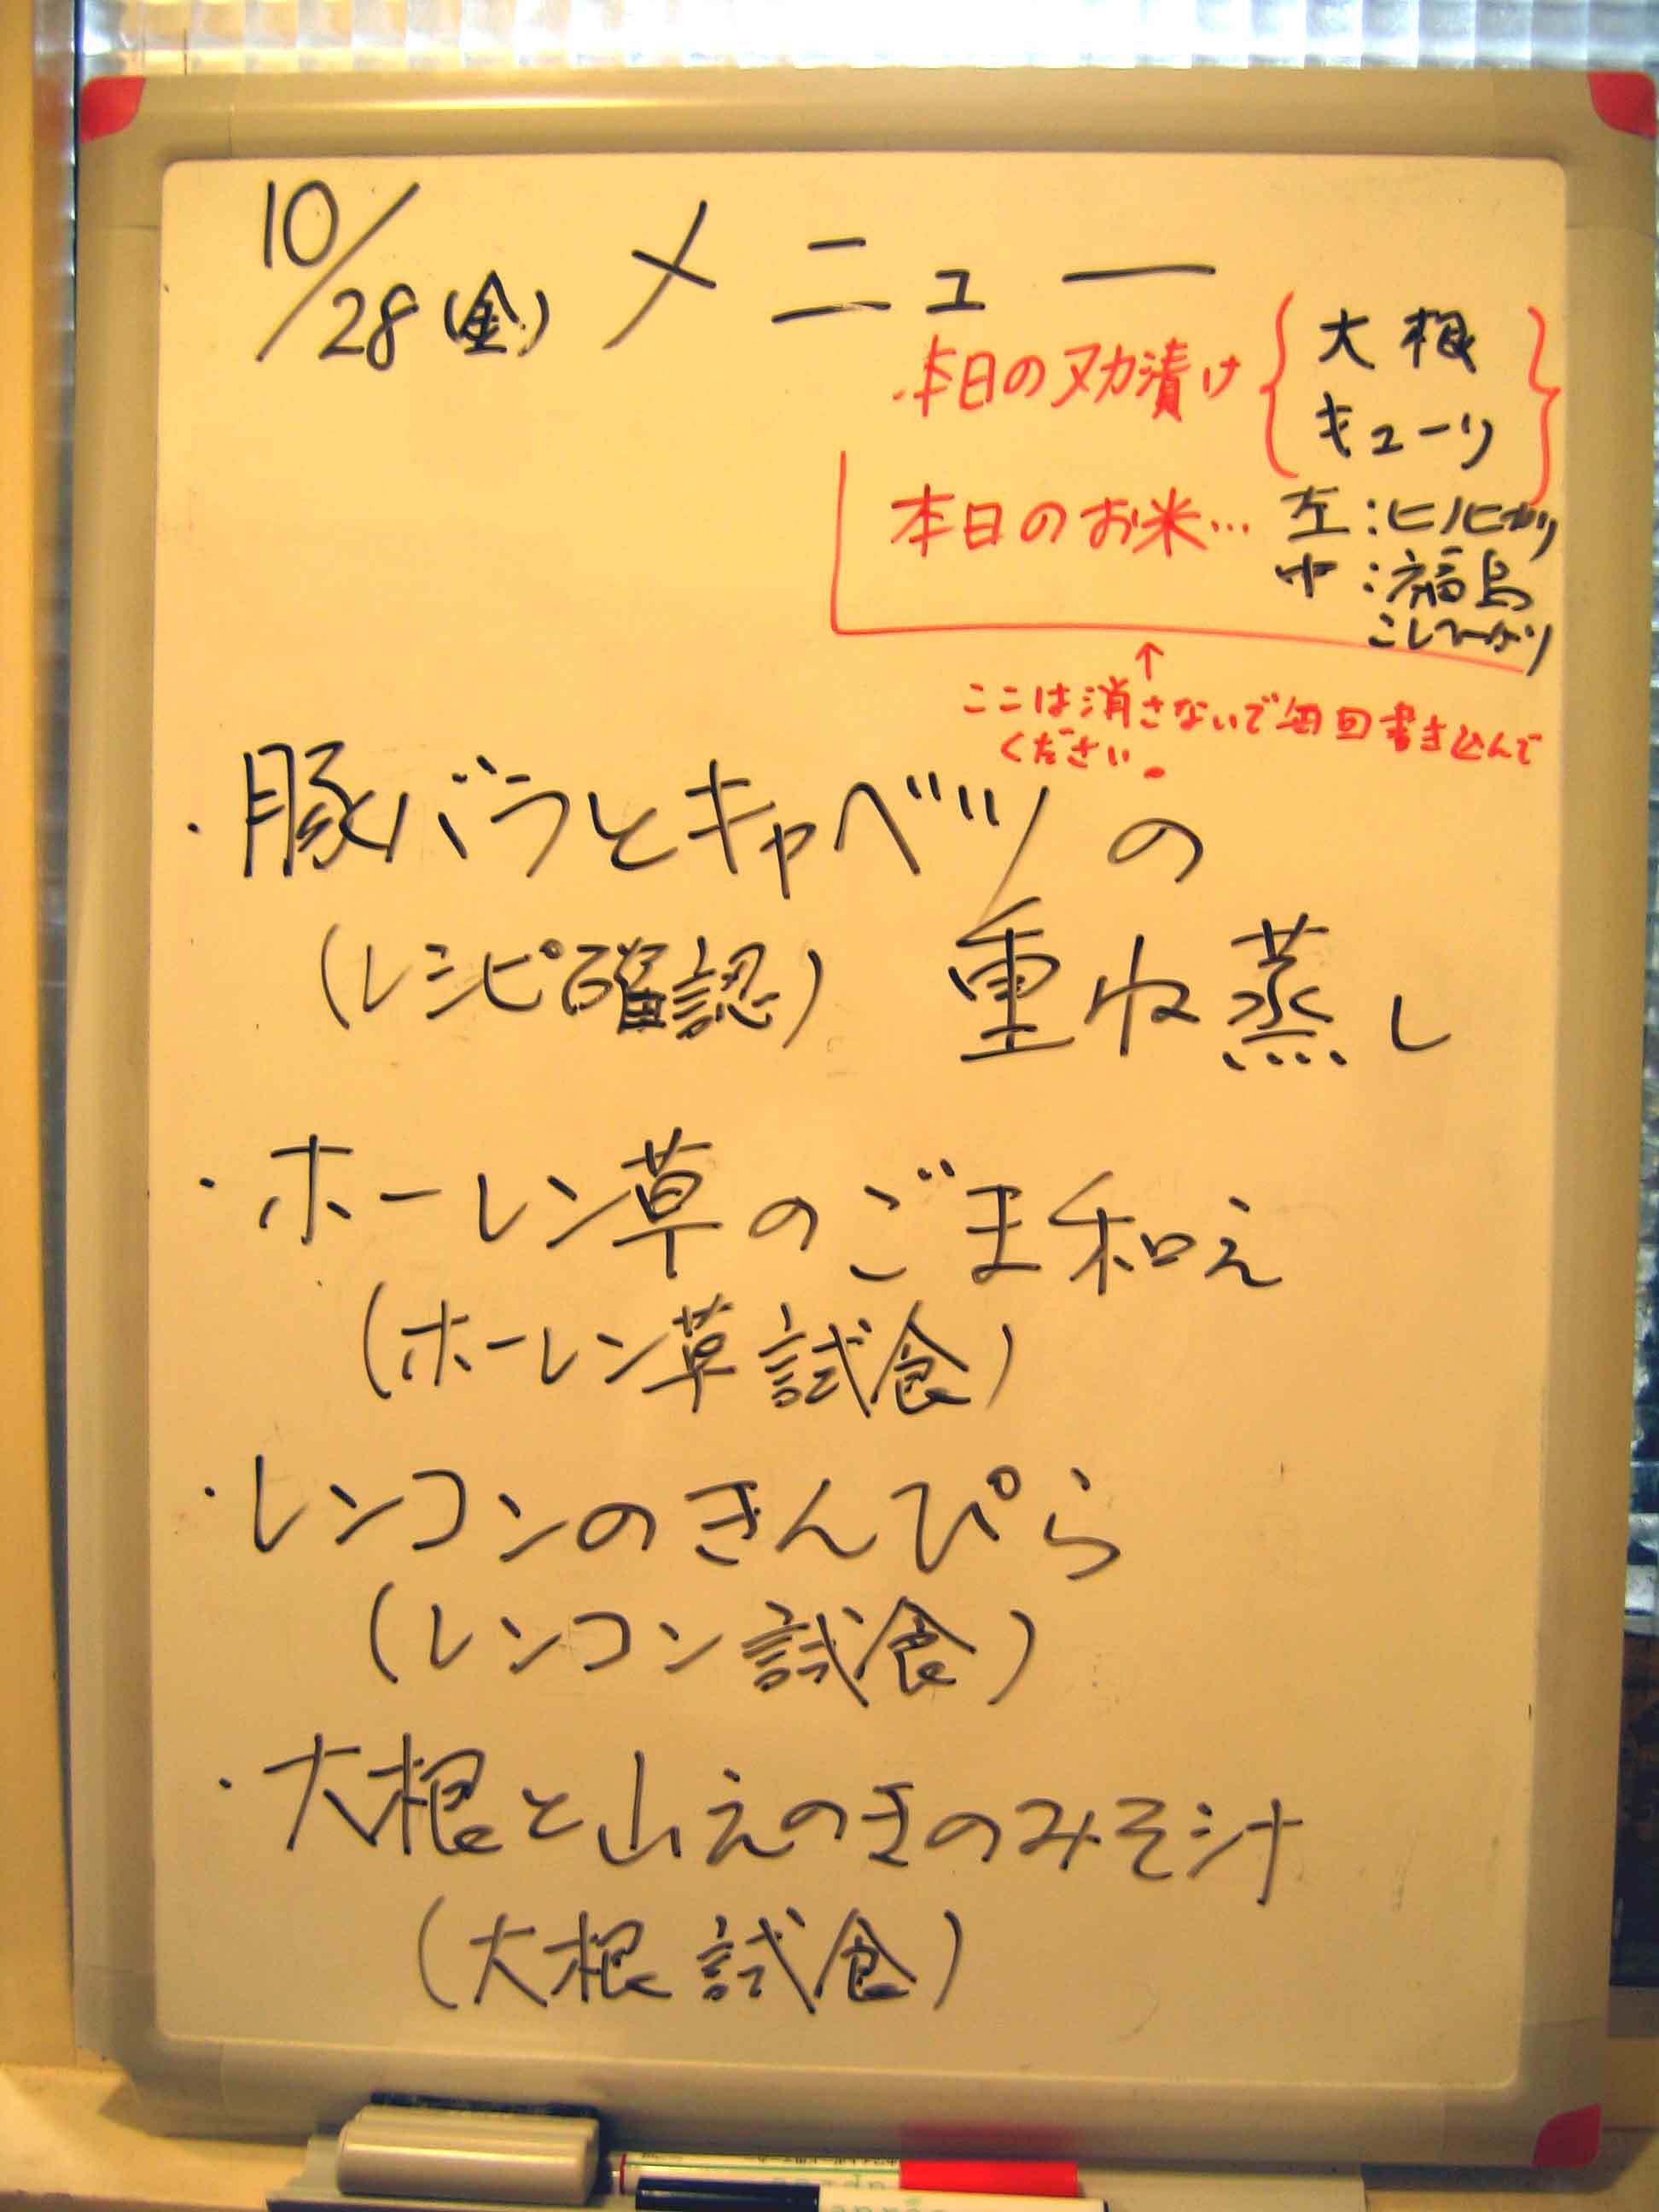 10/28(金) メニュー
本日のヌカ漬け{大根
キューリ}
本日のお米… 左:ヒノヒカリ
中:福島
こしひかり
↑
ここは消さないで毎回書き込んで
ください。
・豚バラとキャベツの
重ね蒸し
(レシピ確認)
・ホーレン草のごま和え
(ホーレン草試食)
・レンコンのきんぴら
(レンコン試食)
・大根と山えのきのみそ汁
(大根試食)